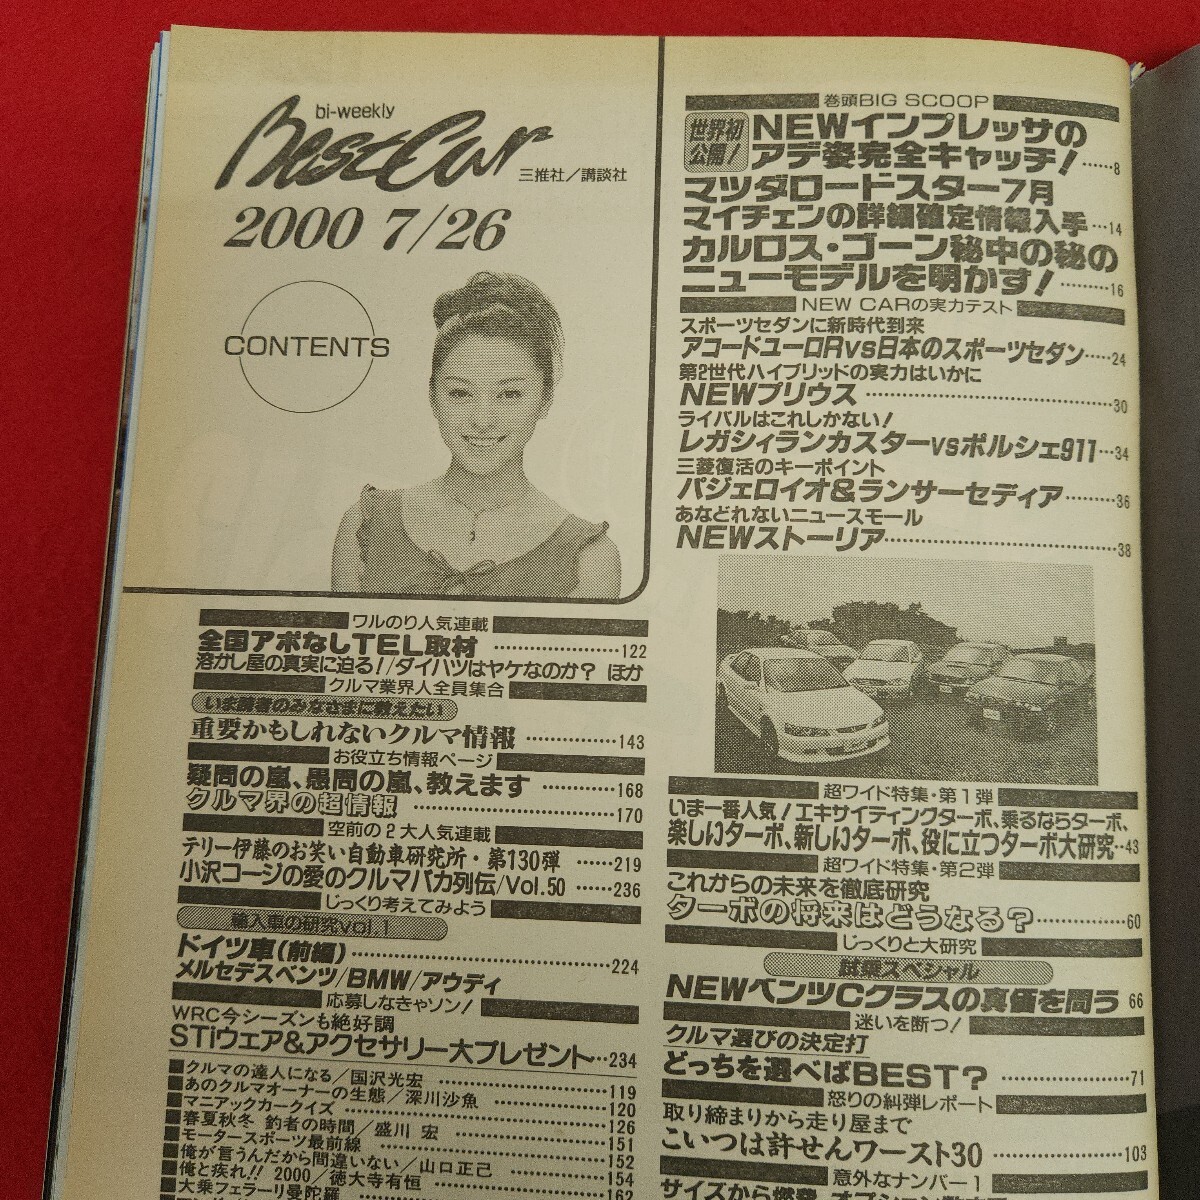 bi-weekly
BestCar
三推社／講談社
2000 7/26
CONTENTS
ワルのり人気連載
全国アポなしTEL取材 ……………122
溶かし屋の真実に迫る!/ダイハツはヤケなのか? ほか
クルマ業界人全員集合
いま読者のみなさまに教えたい
重要かもしれないクルマ情報 ……………143
お役立ち情報ページ
疑問の嵐、愚問の嵐、教えます ……………168
クルマ界の超情報 ……………170
空前の2大人気連載
テリー伊藤のお笑い自動車研究所・第130弾 ……219
小沢コージの愛のクルマバカ列伝/Vol.50 ……236
じっくり考えてみよう
輸入車の研究vol.1
ドイツ車(前編) ……………224
メルセデスベンツ/BMW/アウディ
応募しなきゃソン!
WRC今シーズンも絶好調
STiウェア&アクセサリー大プレゼント…234
■クルマの達人になる／国沢光宏 ……………119
■あのクルマオーナーの生態／深川沙魚 ……………120
■マニアックカークイズ ……………126
■春夏秋冬 釣者の時間／盛川 宏 ……………151
■モータースポーツ最前線 ……………152
■俺が言うんだから間違いない／山口正己 ……………154
■俺と疾れ!! 2000／徳大寺有恒 ……………162
■大乗フェラーリ曼陀羅
巻頭BIG SCOOP
世界初公開!
NEWインプレッサの
アデ姿完全キャッチ! ……8
マツダロードスター7月
マイチェンの詳細確定情報入手 …14
カルロス・ゴーン秘中の秘の
ニューモデルを明かす! ………16
NEW CARの実力テスト
スポーツセダンに新時代到来
アコードユーロRvs日本のスポーツセダン……24
第2世代ハイブリッドの実力はいかに
NEWプリウス ……………30
ライバルはこれしかない!
レガシィランカスターvsポルシェ911…34
三菱復活のキーポイント
パジェロイオ&ランサーセディア………36
あなどれないニュースモール
NEWストーリア……………38
超ワイド特集・第1弾
いま一番人気! エキサイティングターボ、乗るならターボ、
楽しいターボ、新しいターボ、役に立つターボ大研究…43
超ワイド特集・第2弾
これからの未来を徹底研究
ターボの将来はどうなる? ……………60
じっくりと大研究
試乗スペシャル
NEWベンツCクラスの真価を問う 66
迷いを断つ!
クルマ選びの決定打
どっちを選べばBEST? ……………71
怒りの糾弾レポート
取り締まりから走り屋まで
こいつは許せんワースト30 ……………103
意外なナンバー1